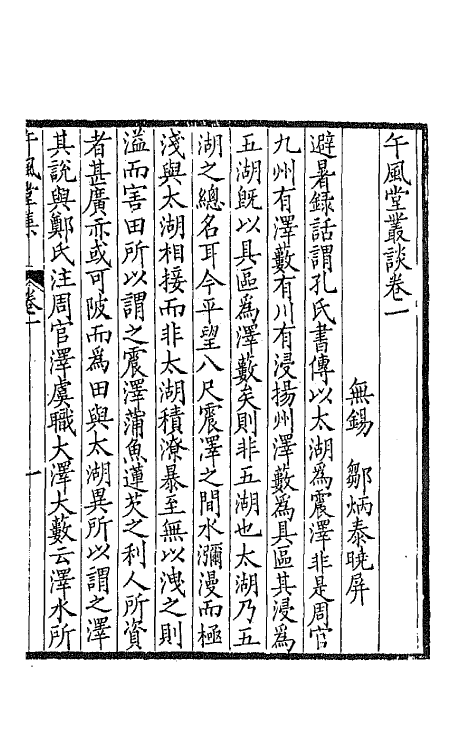 午風堂叢談卷一
無錫 鄒炳泰曉屏
避暑録話謂孔氏書傳以太湖為震澤非是周官
九州有澤藪有川有浸揚州澤藪為具區其浸為
五湖既以具區為澤藪矣則非五湖也太湖乃五
湖之總名耳今平望八尺震澤之間水瀰漫而極
淺與太湖相接而非太湖積潦暴至無以洩之則
溢而害田所以謂之震澤蒲魚蓮芡之利人所資
者甚廣亦或可陂而為田與太湖異所以謂之澤
其說與鄭氏注周官澤虞職大澤大藪云澤水所
午風堂集 卷一 一